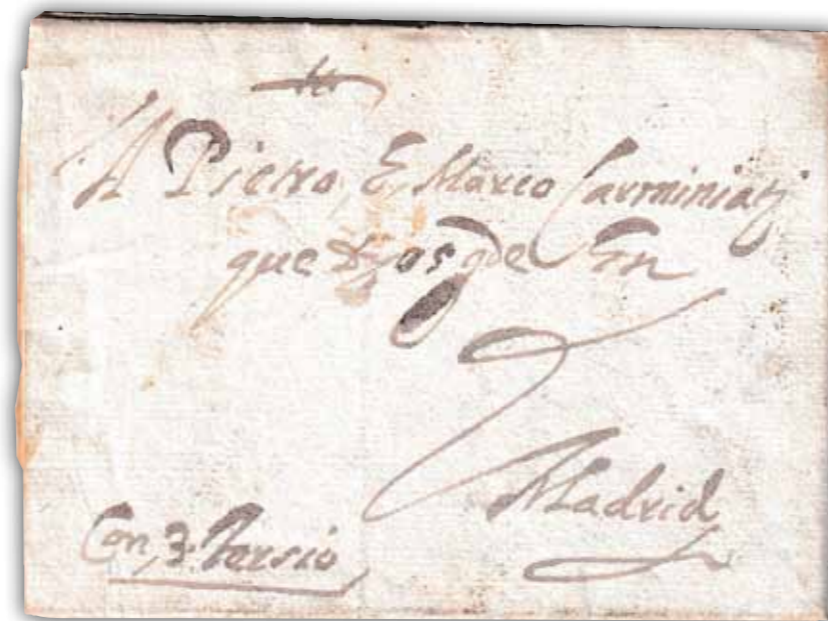 A Pietro, E, Marco Carminiatj
que Dios gde
Madrid
Con, 3: